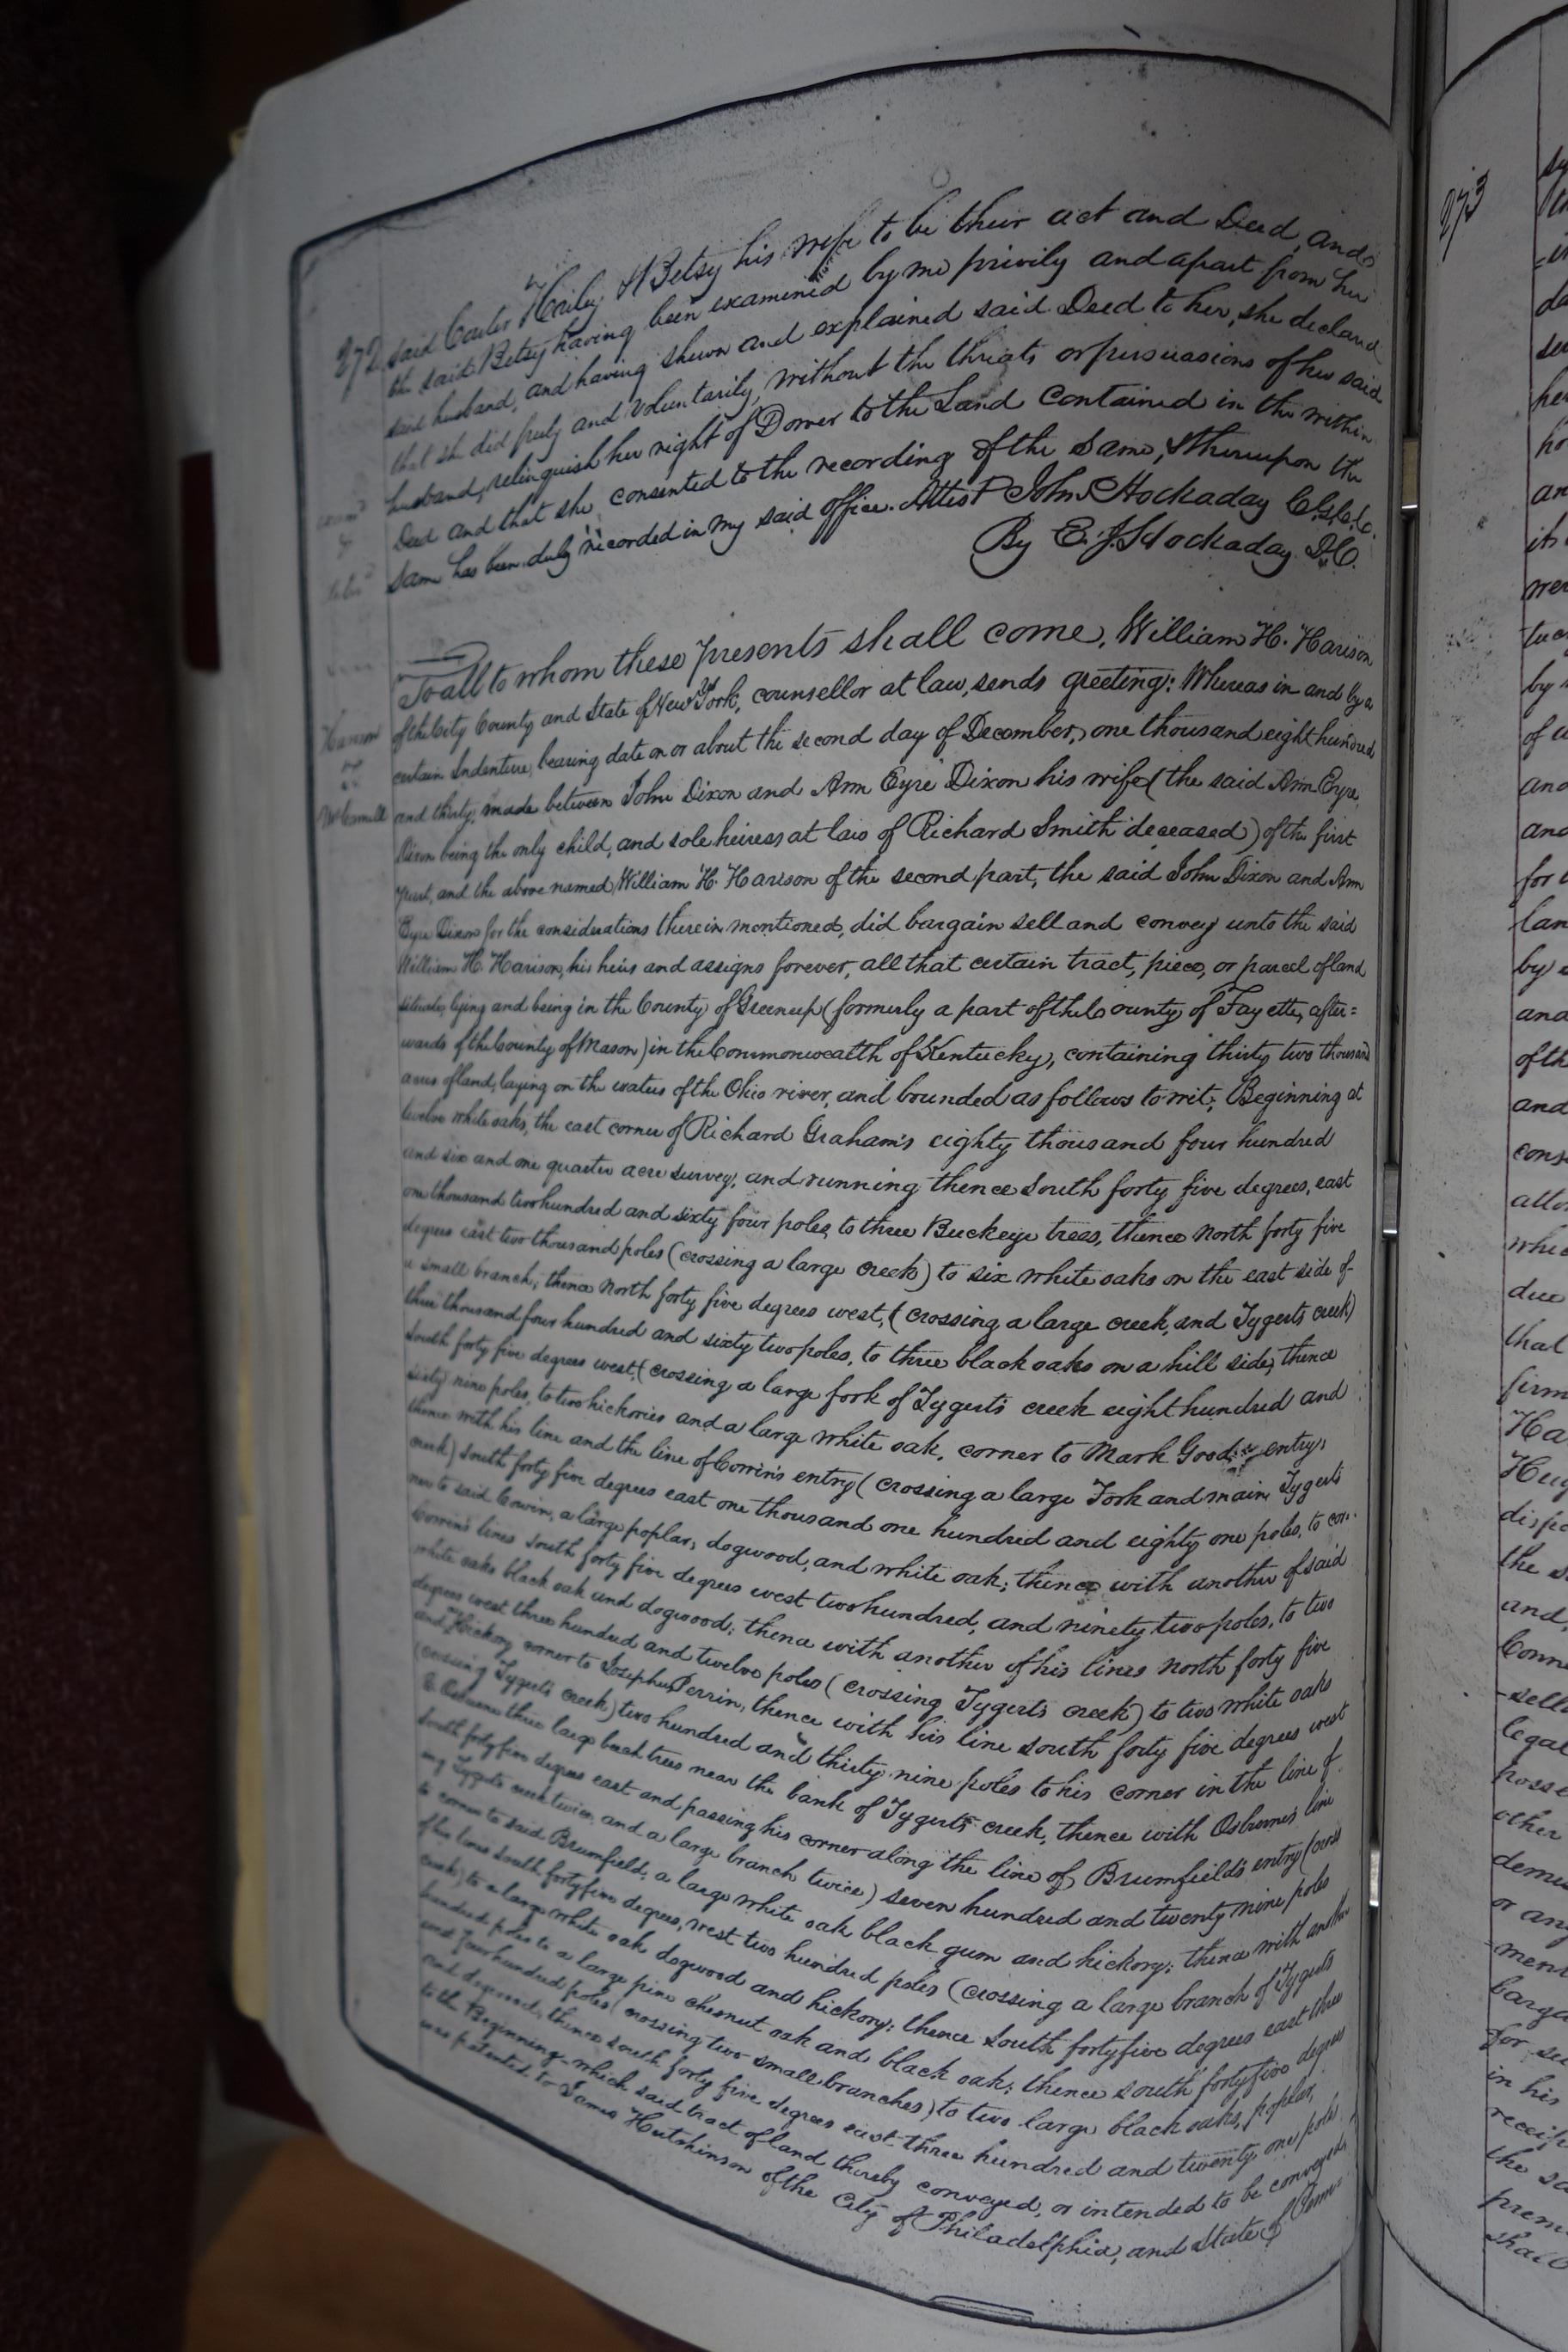 272 said Carter Haily & Betsy his wife to be their act and Deed, and
the said Betsy having been examined by me privily and apart from her
said husband, and having shewn and explained said Deed to her, she declared
that she did freely and voluntarily, without the threats or persuasions of her said
husband, relinquish her right of Dower to the Land contained in the within
Deed and that she consented to the recording of the same, & thereupon the
same has been duly recorded in my said office. Attest John Hockaday C.G.C.C.
By E. J. Hockaday D.C.
To all to whom these presents shall come, William H. Harison
of the City County and State of New York, counsellor at law, sends greeting: Whereas in and by a
certain Indenture, bearing date on or about the second day of December, one thousand eight hundred
and thirty, made between John Dixon and Ann Eyre Dixon his wife (the said Ann Eyre
Dixon being the only child, and sole heiress at law of Richard Smith deceased) of the first
part, and the above named William H. Harison of the second part, the said John Dixon and Ann
Eyre Dixon for the considerations therein mentioned, did bargain sell and convey unto the said
William H. Harison, his heirs and assigns forever, all that certain tract, piece, or parcel of land
situate, lying and being in the County of Greenup (formerly a part of the County of Fayette, after=
wards of the County of Mason) in the Commonwealth of Kentucky, containing thirty two thousand
acres of land, laying on the waters of the Ohio river, and bounded as follows to wit; Beginning at
twelve white oaks, the east corner of Richard Graham's eighty thousand four hundred
and six and one quarter acre survey, and running thence South forty five degrees, east
one thousand two hundred and sixty four poles, to three Buckeye trees, thence North forty five
degrees east two thousand poles (crossing a large creek) to six white oaks on the east side of
a small branch; thence North forty five degrees west, (crossing a large creek, and Tygerts creek)
three thousand four hundred and sixty two poles, to three black oaks on a hill side, thence
South forty five degrees west, (crossing a large fork of Tygert's creek eight hundred and
sixty nine poles, to two hickories and a large white oak, corner to Mark Good's entry,
thence with his line and the line of Corrin's entry (crossing a large Fork and main Tygerts
creek) south forty five degrees east one thousand one hundred and eighty one poles, to cor-
ner to said Cowin, a large poplar, dogwood, and white oak; thence with another of said
Corrin's lines south forty five degrees west two hundred, and ninety two poles, to two
white oaks black oak and dogwood; thence with another of his lines north forty five
degrees west three hundred and twelve poles (crossing Tygerts creek) to two white oaks
and Hickory corner to Joseph Perrin, thence with his line south forty five degrees west
(crossing Tygert's creek) two hundred and thirty nine poles to his corner in the line of
three large beech trees near the bank of Tygerts creek, thence with Osburnes line
south forty five degrees east and passing his corner along the line of Brumfield's entry (cross
ing Tygerts creek twice, and a large branch twice) seven hundred and twenty nine poles
to corner to said Brumfield, a large white oak black gum and hickory; thence with another
of his lines south forty five degrees, west two hundred poles (crossing a large branch of Tygerts
creek) to a large white oak dogwood and hickory; thence south forty five degrees east three
hundred poles to a large pine chesnut oak and black oak; thence south forty five degrees
west four hundred poles (crossing two small branches) to two large black oaks, poplar,
and dogwood, thence south forty five degrees east three hundred and twenty one poles
to the Beginning which said tract of land thereby conveyed, or intended to be conveyed
was patented to James Hutchinson of the City of Philadelphia, and State of Penn-
Harison
273